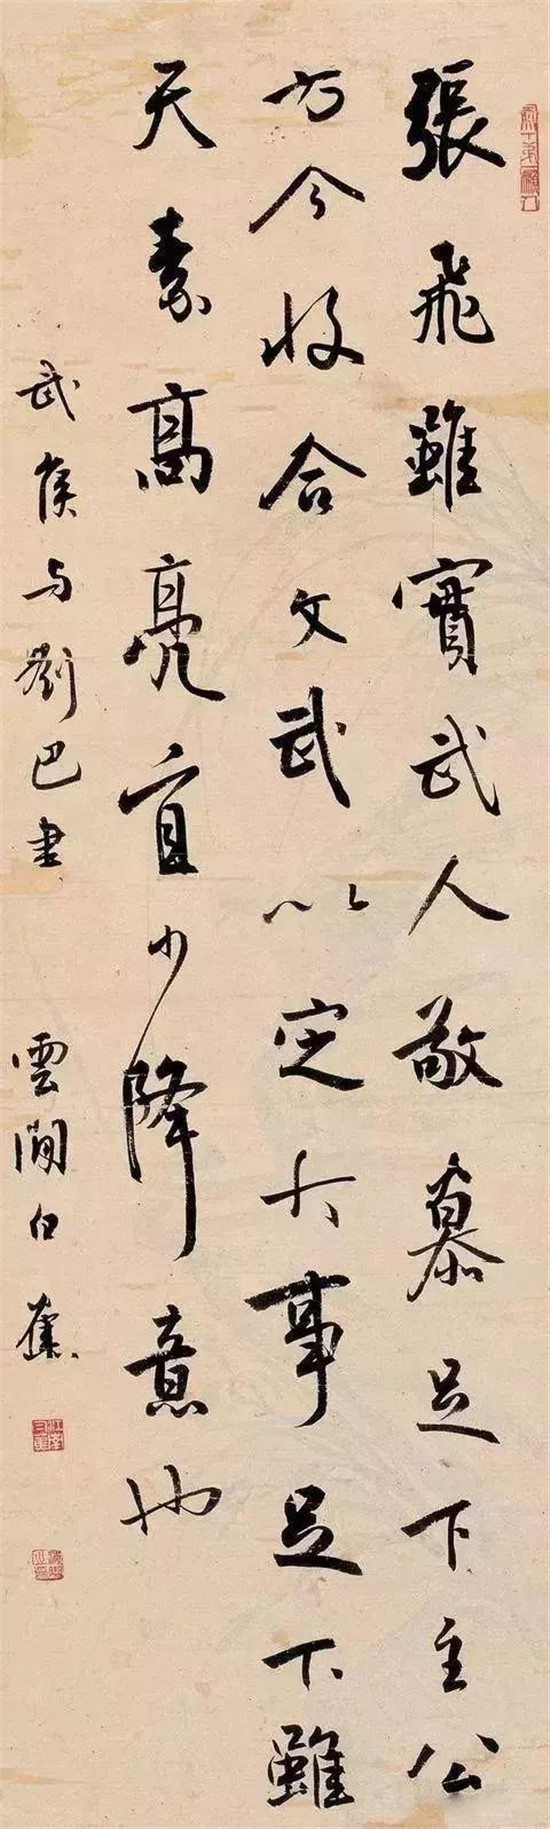 張飛雖實武人敬慕足下主公
方今收合文武以定大事足下雖
天素高亮宜少降意也
武侯與劉巴書
雲間白蕉